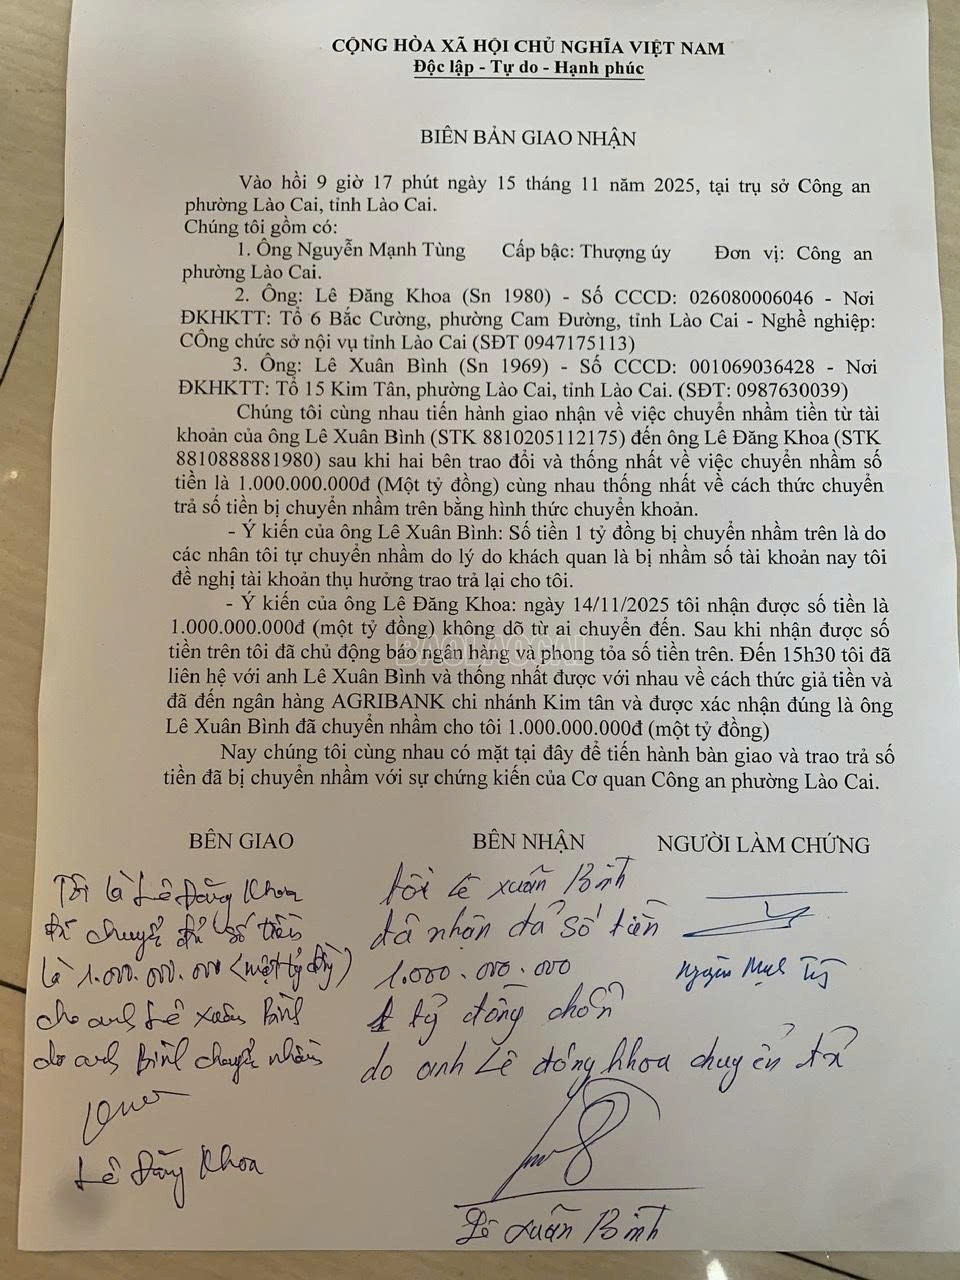 CỘNG HÒA XÃ HỘI CHỦ NGHĨA VIỆT NAM
Độc lập - Tự do - Hạnh phúc
BIÊN BẢN GIAO NHẬN
Vào hồi 9 giờ 17 phút ngày 15 tháng 11 năm 2025, tại trụ sở Công an
phường Lào Cai, tỉnh Lào Cai.
Chúng tôi gồm có:
1. Ông Nguyễn Mạnh Tùng Cấp bậc: Thượng úy Đơn vị: Công an
phường Lào Cai.
2. Ông: Lê Đăng Khoa (Sn 1980) - Số CCCD: 026080006046 - Nơi
ĐKHKTT: Tổ 6 Bắc Cường, phường Cam Đường, tỉnh Lào Cai - Nghề nghiệp:
CÔng chức sở nội vụ tỉnh Lào Cai (SĐT 0947175113)
3. Ông: Lê Xuân Bình (Sn 1969) - Số CCCD: 001069036428 - Nơi
ĐKHKTT: Tổ 15 Kim Tân, phường Lào Cai, tỉnh Lào Cai. (SĐT: 0987630039)
Chúng tôi cùng nhau tiến hành giao nhận về việc chuyển nhầm tiền từ tài
khoản của ông Lê Xuân Bình (STK 8810205112175) đến ông Lê Đăng Khoa (STK
8810888881980) sau khi hai bên trao đổi và thống nhất về việc chuyển nhầm số
tiền là 1.000.000.000đ (Một tỷ đồng) cùng nhau thống nhất về cách thức chuyển
trả số tiền bị chuyển nhầm trên bằng hình thức chuyển khoản.
- Ý kiến của ông Lê Xuân Bình: Số tiền 1 tỷ đồng bị chuyển nhầm trên là do
các nhân tôi tự chuyển nhầm do lý do khách quan là bị nhầm số tài khoản nay tôi
đề nghị tài khoản thụ hưởng trao trả lại cho tôi.
- Ý kiến của ông Lê Đăng Khoa: ngày 14/11/2025 tôi nhận được số tiền là
1.000.000.000đ (một tỷ đồng) không dõ từ ai chuyển đến. Sau khi nhận được số
tiền trên tôi đã chủ động báo ngân hàng và phong tỏa số tiền trên. Đến 15h30 tôi đã
liên hệ với anh Lê Xuân Bình và thống nhất được với nhau về cách thức giả tiền và
đã đến ngân hàng AGRIBANK chi nhánh Kim tân và được xác nhận đúng là ông
Lê Xuân Bình đã chuyển nhầm cho tôi 1.000.000.000đ (một tỷ đồng)
Nay chúng tôi cùng nhau có mặt tại đây để tiến hành bàn giao và trao trả số
tiền đã bị chuyển nhầm với sự chứng kiến của Cơ quan Công an phường Lào Cai.
BAOLAOCAI
BÊN GIAO BÊN NHẬN NGƯỜI LÀM CHỨNG
Tôi là Lê Đăng Khoa
Đã chuyển đủ số tiền
là 1.000.000.000 (một tỷ đồng)
cho anh Lê Xuân Bình
do anh Bình chuyển nhầm
Lê Đăng Khoa
tôi Lê Xuân Bình
đã nhận đủ số tiền
1.000.000.000
1 tỷ đồng chẵn
do anh Lê đăng khoa chuyển trả
Lê Xuân Bình
Nguyễn Mạnh Tùng